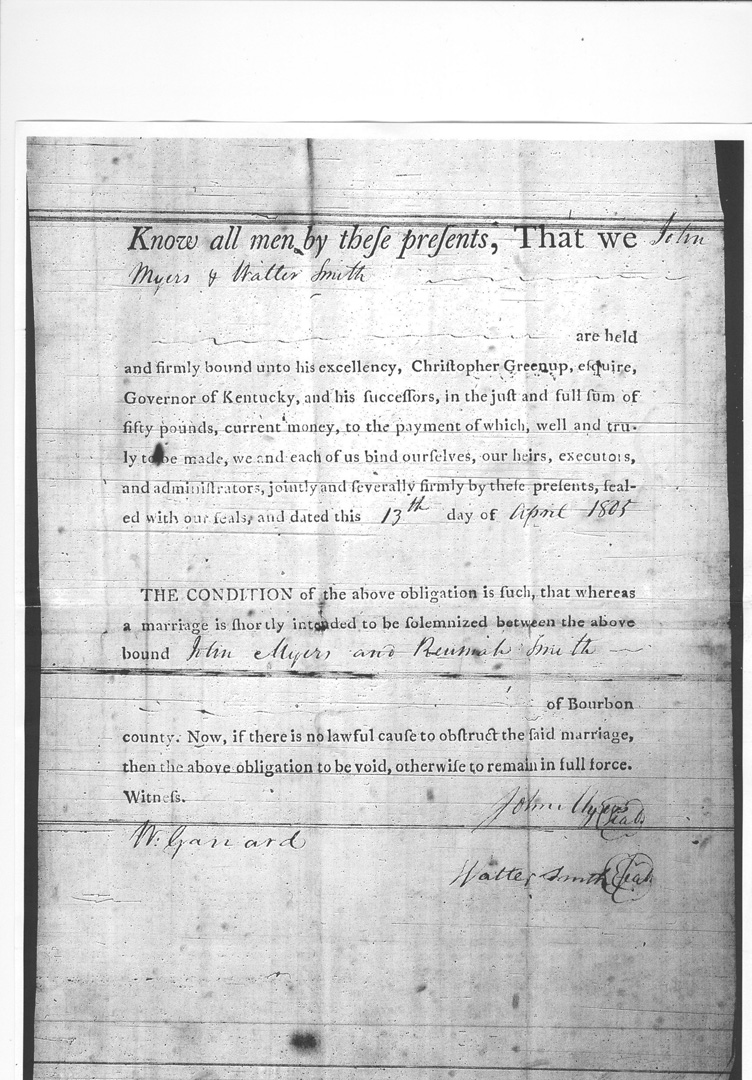 Know all men by theſe preſents, That we John
Myers & Walter Smith
are held
and firmly bound unto his excellency, Chriſtopher Greenup, eſquire,
Governor of Kentucky, and his ſucceſſors, in the juſt and full ſum of
fifty pounds, current money, to the payment of which, well and tru-
ly to be made, we and each of us bind ourſelves, our heirs, executors,
and adminiſtrators, jointly and ſeverally firmly by theſe preſents, ſeal-
ed with our ſeals, and dated this 13th day of April 1805
THE CONDITION of the above obligation is ſuch, that whereas
a marriage is ſhortly intended to be ſolemnized between the above
bound John Myers and Smith
of Bourbon
county. Now, if there is no lawful cauſe to obſtruct the ſaid marriage,
then the above obligation to be void, otherwiſe to remain in full force.
Witneſs.
John Myers Seal
W. Garrard
Walter Smith Seal